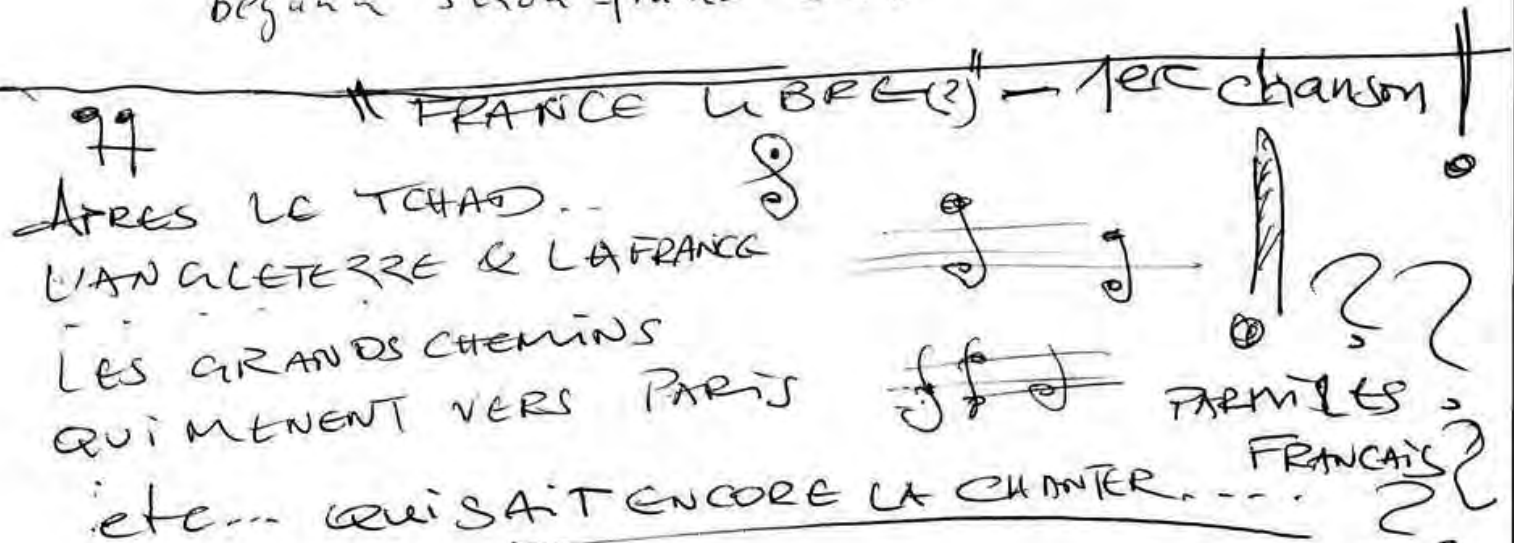 "FRANCE LIBRE(?)" - 1ere chanson !
APRES LE TCHAD..
L'ANGLETERRE & LA FRANCE
LES GRANDS CHEMINS
QUI MENENT VERS PARIS
PARMI LES
FRANCAIS ? ? ? ?
etc... QUI SAIT ENCORE LA CHANTER.....